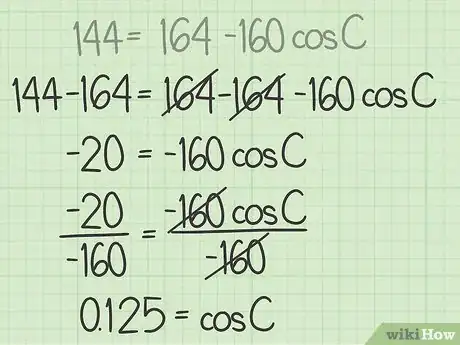 144 = 164 -160 cos C
144-164 = 164-164 -160 cos C
-20 = -160 cos C
-20 = -160 cos C
-160 -160
0.125 = cos C
wikiHow